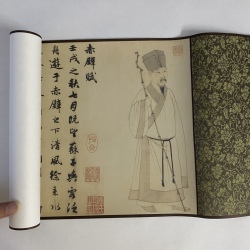 赤壁賦
壬戌之秋七月既望蘇子與客泛
舟遊于赤壁之下清風徐來水